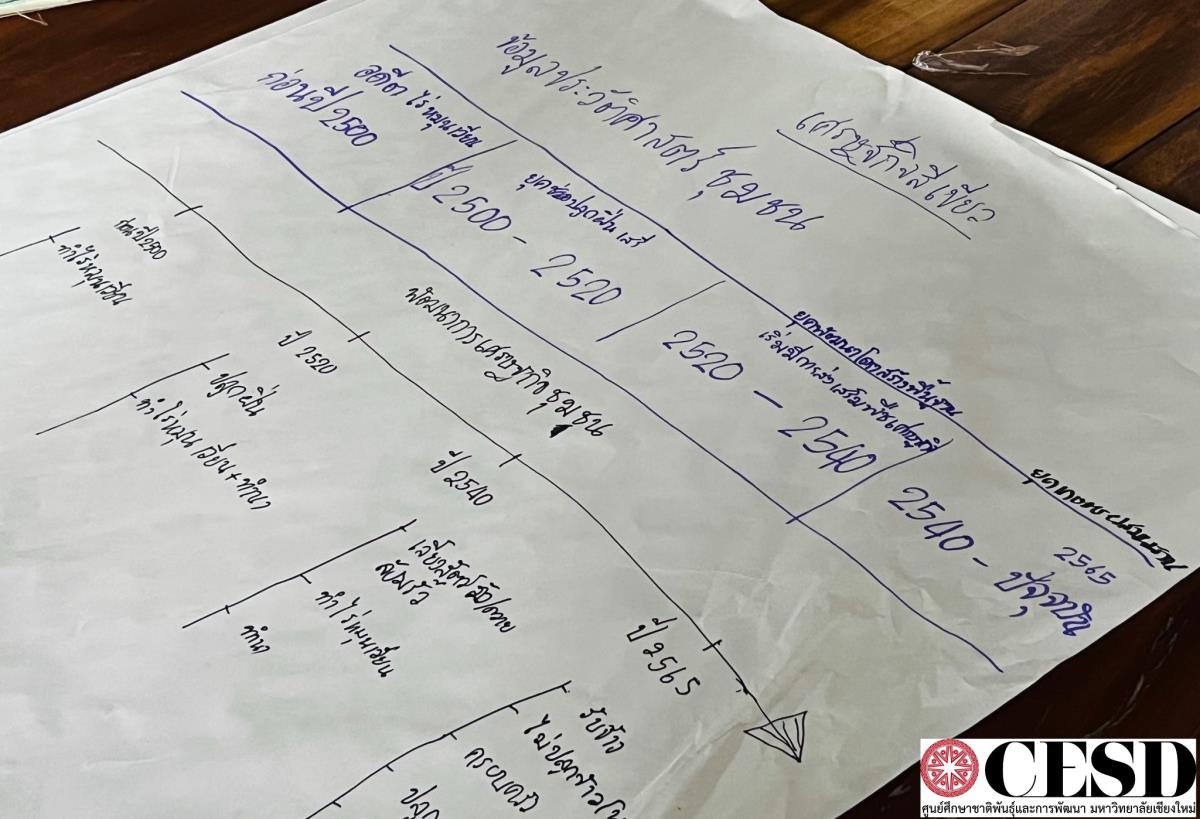 เศรษฐกิจสีเขียว
ข้อมูลประวัติศาสตร์ชุมชน
อดีต ไร่หมุนเวียน
ก่อนปี 2500
ปี 2500 - 2520
ยุคพัฒนาโครงสร้างพื้นฐาน
เริ่มมีการส่งเสริมพืชเศรษฐกิจ
2520 - 2540
2565
2540 - ปัจจุบัน
พัฒนาการเศรษฐกิจชุมชน
ก่อนปี 2500
ทำไร่หมุนเวียน
ปี 2520
ปลูกฝิ่น
ทำไร่หมุนเวียน + ทำนา
ปี 2540
ทำไร่หมุนเวียน
ทำนา
ปี 2565
รับจ้าง
ครอบครัว
CESD
ศูนย์ศึกษาชาติพันธุ์และการพัฒนา มหาวิทยาลัยเชียงใหม่